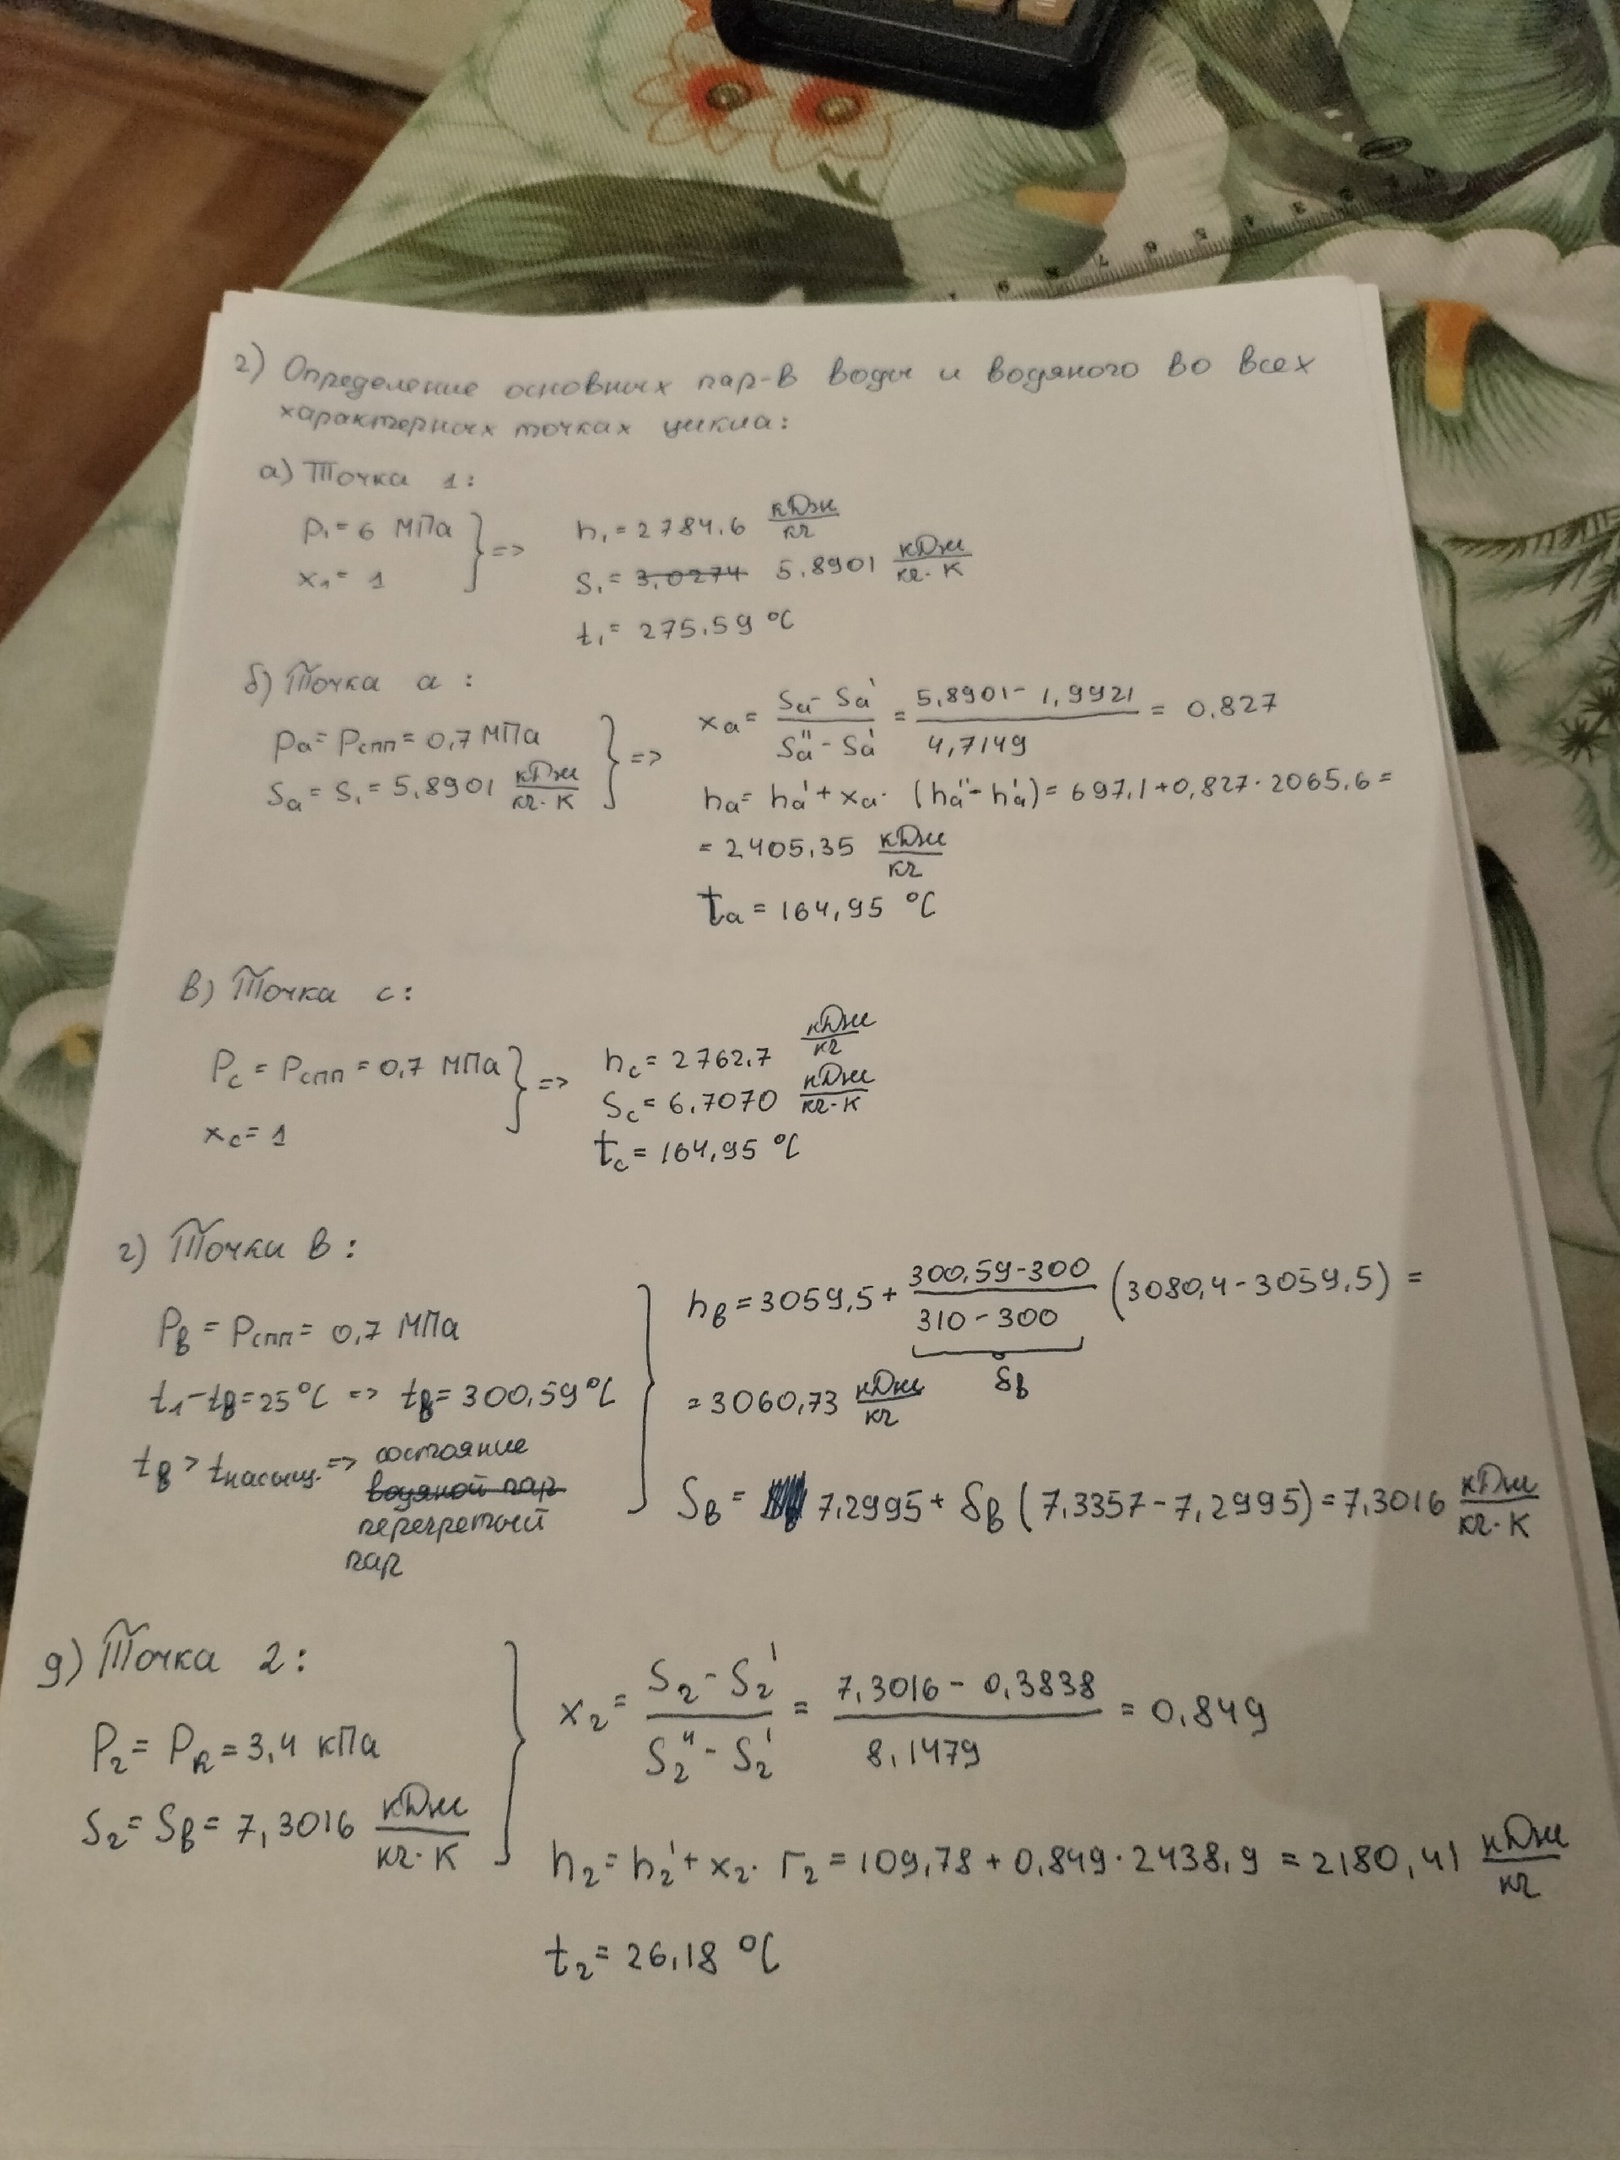 2) Определение основных пар-в воды и водяного во всех
характерных точках цикла:
а) Точка 1:
p₁ = 6 МПа
x₁ = 1
} =>
h₁ = 2784,6 кДж/кг
s₁ = ~~3,0274~~ 5,8901 кДж/кг·К
t₁ = 275,59 °C
б) Точка a:
pa = pспп = 0,7 МПа
Sa = S₁ = 5,8901 кДж/кг·К
} =>
xa = (Sa - Sa')/(Sa'' - Sa') = (5,8901 - 1,9921)/4,7149 = 0,827
ha = ha' + xa · (ha'' - ha') = 697,1 + 0,827 · 2065,6 =
= 2405,35 кДж/кг
ta = 164,95 °C
в) Точка c:
Pc = Pспп = 0,7 МПа
xc = 1
} =>
hc = 2762,7 кДж/кг
Sc = 6,7070 кДж/кг·К
tc = 164,95 °C
г) Точки в:
Pв = Pспп = 0,7 МПа
t₁ - tв = 25 °C => tв = 300,59 °C
tв > tнасыщ. => состояние
~~водяной пар~~
перегретый
пар
}
hв = 3059,5 + (300,59 - 300)/(310 - 300) (3080,4 - 3059,5) =
δв
= 3060,73 кДж/кг
Sв = 7,2995 + δв (7,3357 - 7,2995) = 7,3016 кДж/кг·К
д) Точка 2:
P₂ = Pк = 3,4 кПа
S₂ = Sв = 7,3016 кДж/кг·К
}
x₂ = (S₂ - S₂')/(S₂'' - S₂') = (7,3016 - 0,3838)/8,1479 = 0,849
h₂ = h₂' + x₂ · r₂ = 109,78 + 0,849 · 2438,9 = 2180,41 кДж/кг
t₂ = 26,18 °C